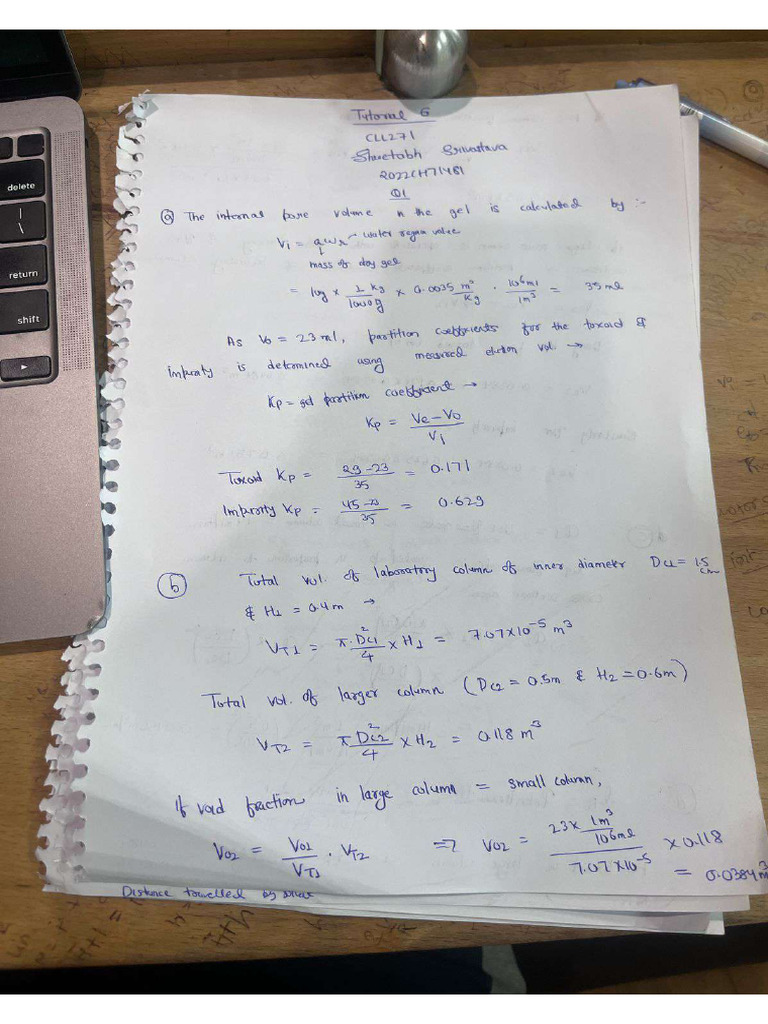 delete
|
\
return
shift
Tutorial 6
CLL271
Shwetabh Srivastava
2022CH71461
Q1
(a) The internal pore volume in the gel is calculated by :-
Vi = a wr → water regain value
↓
mass of dry gel
= 10g × 1 kg / 1000g × 0.0035 m³/kg · 10⁶ ml / 1m³ = 35 ml
As Vo = 23 ml, partition coefficients for the toxoid &
impurity is determined using measured elution vol →
Kp = gel partition coefficient →
Kp = Ve – Vo / Vi
Toxoid Kp = 29 – 23 / 35 = 0.171
Impurity Kp = 45 – 23 / 35 = 0.629
(b) Total vol. of laboratory column of inner diameter Dc1 = 1.5 cm
& H1 = 0.4m →
VT1 = π · Dc1² / 4 × H1 = 7.07 × 10⁻⁵ m³
Total vol. of larger column (Dc2 = 0.5m & H2 = 0.6m)
VT2 = π Dc2² / 4 × H2 = 0.118 m³
If void fraction in large column = small column,
Vo2 = Vo1 / VT1 · VT2 ⇒ Vo2 = 23 × 1m³ / 10⁶ ml / 7.07 × 10⁻⁵ × 0.118
= 0.0384 m³
Distance travelled by